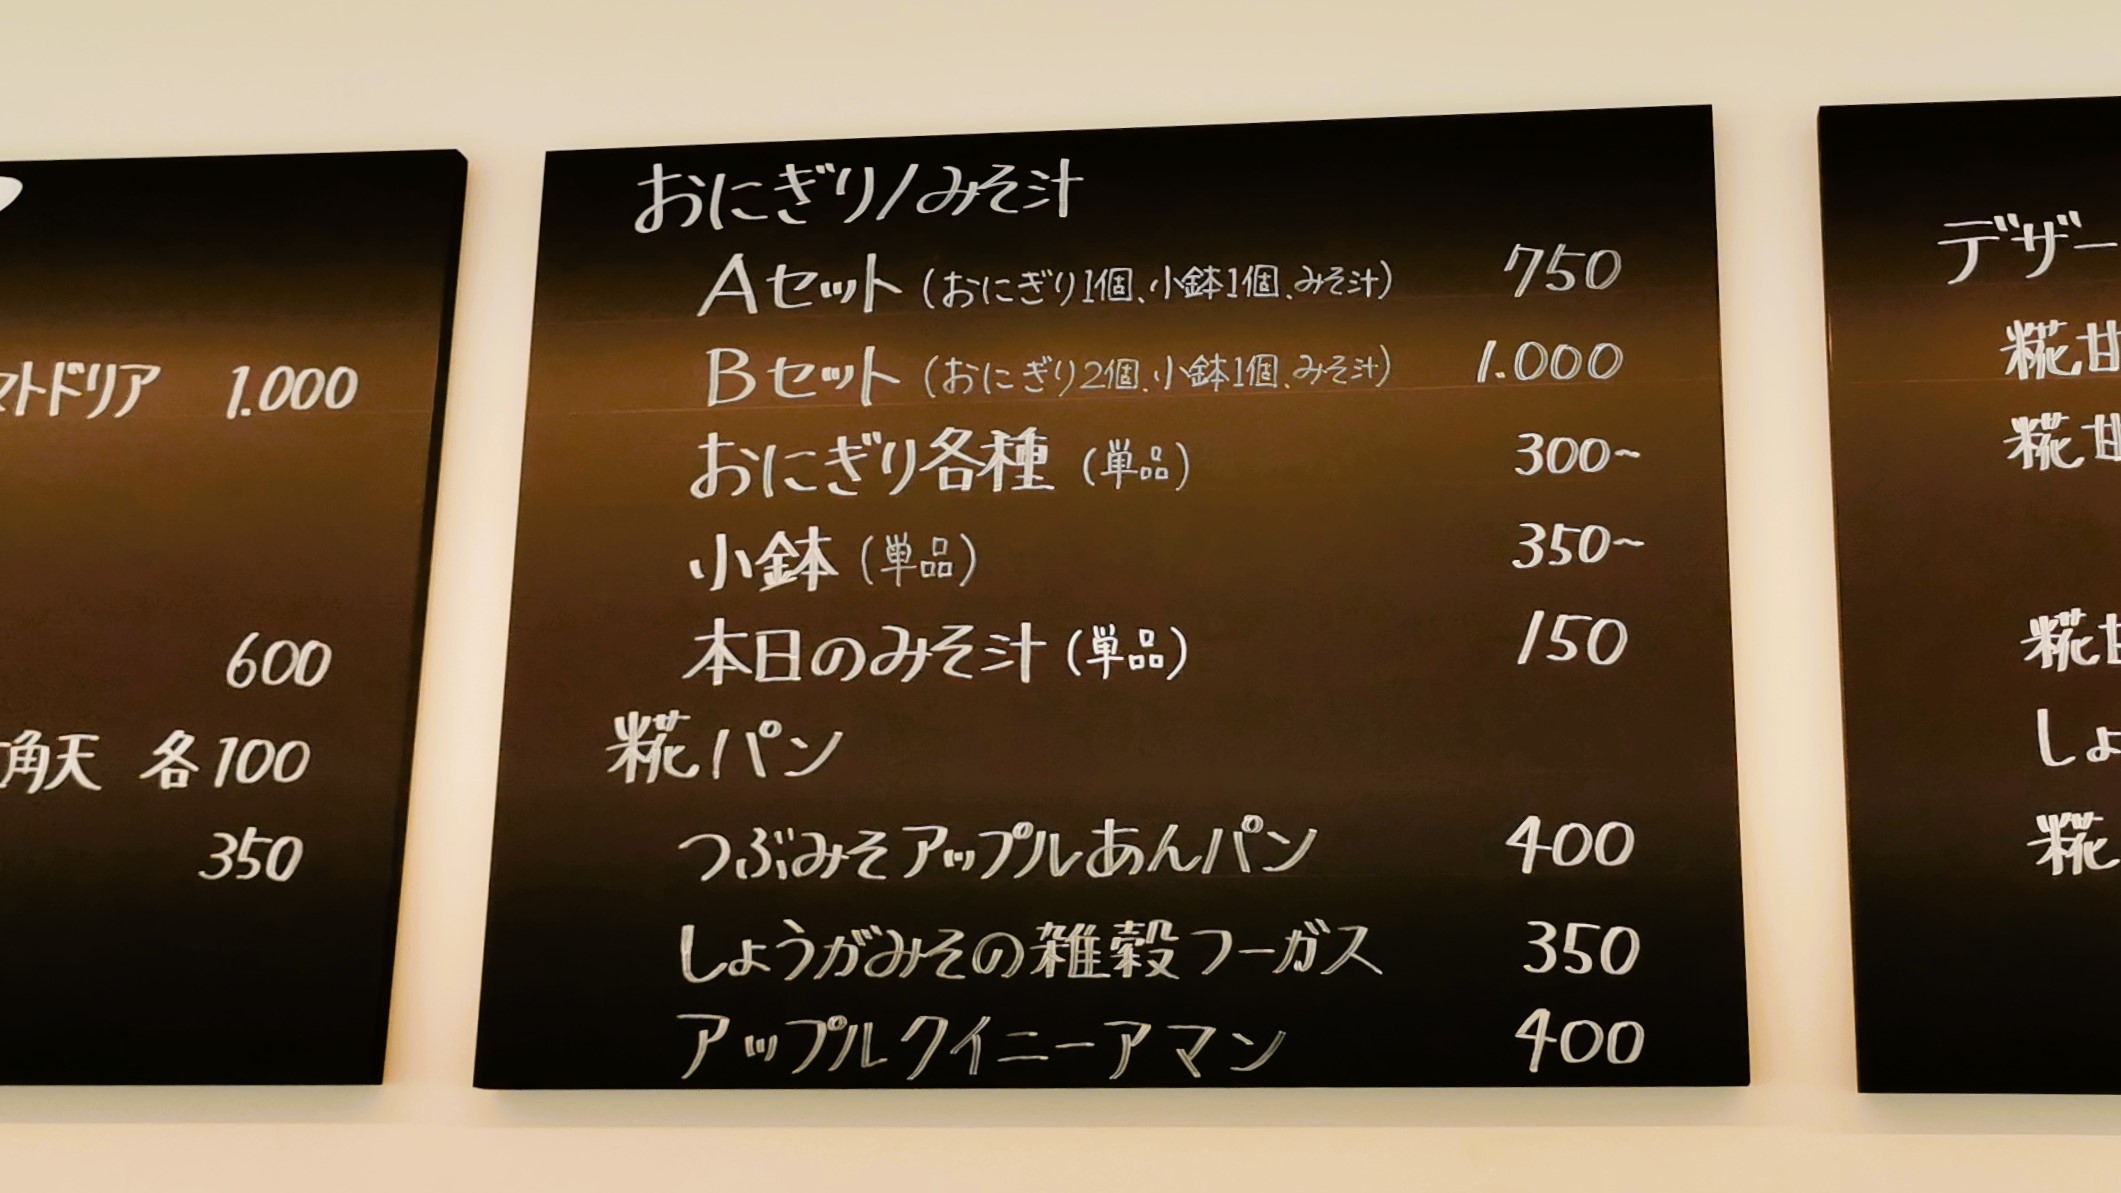 マトドリア 1.000
600
角天 各100
350
おにぎり/みそ汁
Aセット (おにぎり1個、小鉢1個、みそ汁) 750
Bセット (おにぎり2個、小鉢1個、みそ汁) 1.000
おにぎり各種 (単品) 300~
小鉢 (単品) 350~
本日のみそ汁 (単品) 150
糀パン
つぶみそアップルあんパン 400
しょうがみその雑穀フーガス 350
アップルクイニーアマン 400
デザー
糀甘
糀甘
糀甘
しょ
糀